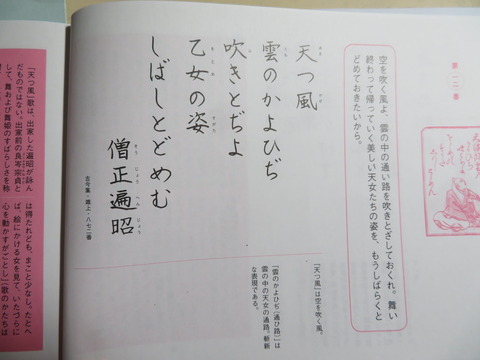 第一二番
空を吹く風よ、雲の中の通い路を吹きとざしておくれ。舞い
終わって帰っていく美しい天女たちの姿を、もうしばらくと
どめておきたいから。
天つ風
雲のかよひぢ
吹きとぢよ
乙女の姿
しばしとどめむ
僧正遍昭
そうじょうへんじょう
古今集・雑上・八七二番
「天つ風」は空を吹く風。
「雲のかよひぢ(通ひ路)」は
雲の中の天女の通路。斬新
な表現である。
「天つ風」歌は、出家した遍昭が詠ん
だものではない。出家前の良岑宗貞と
して、舞および舞姫のすばらしさを称
は得たれども、まこと少なし。たとへ
ば、絵にかける女を見て、いたづらに
心を動かすがごとし」(歌のかたちは